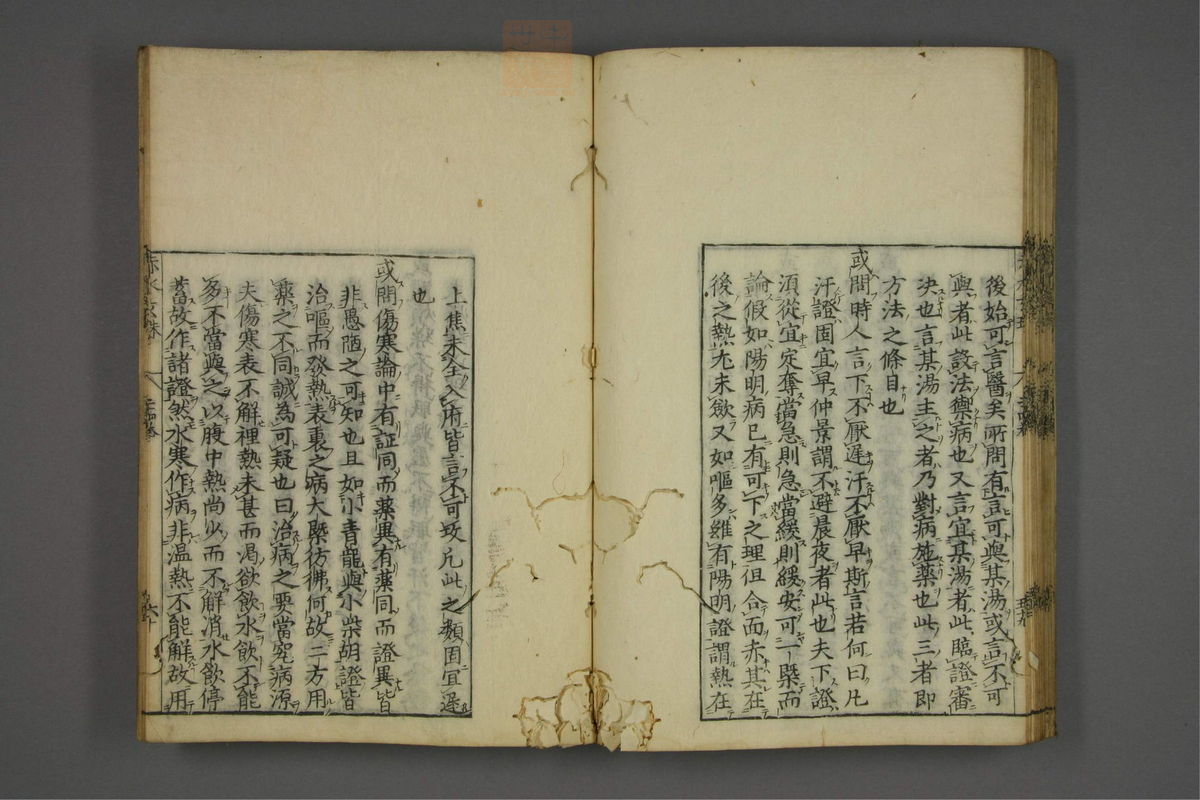 後始可言醫矣所問有言可與某湯或言不可
與者此設法禦病也又言宜某湯者此臨證審
決也言某湯主之者乃對病施藥也此三者即
方法之條目也
或問時人言下不厭遲汗不厭早斯言若何曰凡
汗證固宜早仲景謂不避晨夜者此也夫下證
須從宜定奪當急則急當緩則緩安可一槩而
論假如陽明病已有可下之理但合面赤其在
後之熱尤未斂又如嘔多雖有陽明證謂熱在
上焦未全入府皆言不可攻凡此之類固宜遲
也
或問傷寒論中有証同而藥異有藥同而證異皆
非愚陋之可知也且如小青龍與小柴胡證皆
治嘔而發熱表裏之病大槩彷彿何故二方用
藥之不同誠為可疑也曰治病之要當究病源
夫傷寒表不解裡熱未甚而渴欲飲水飲不能
多不當與之以腹中熱尚少而不解消水飲停
蓄故作諸證然水寒作病非温熱不能解故用